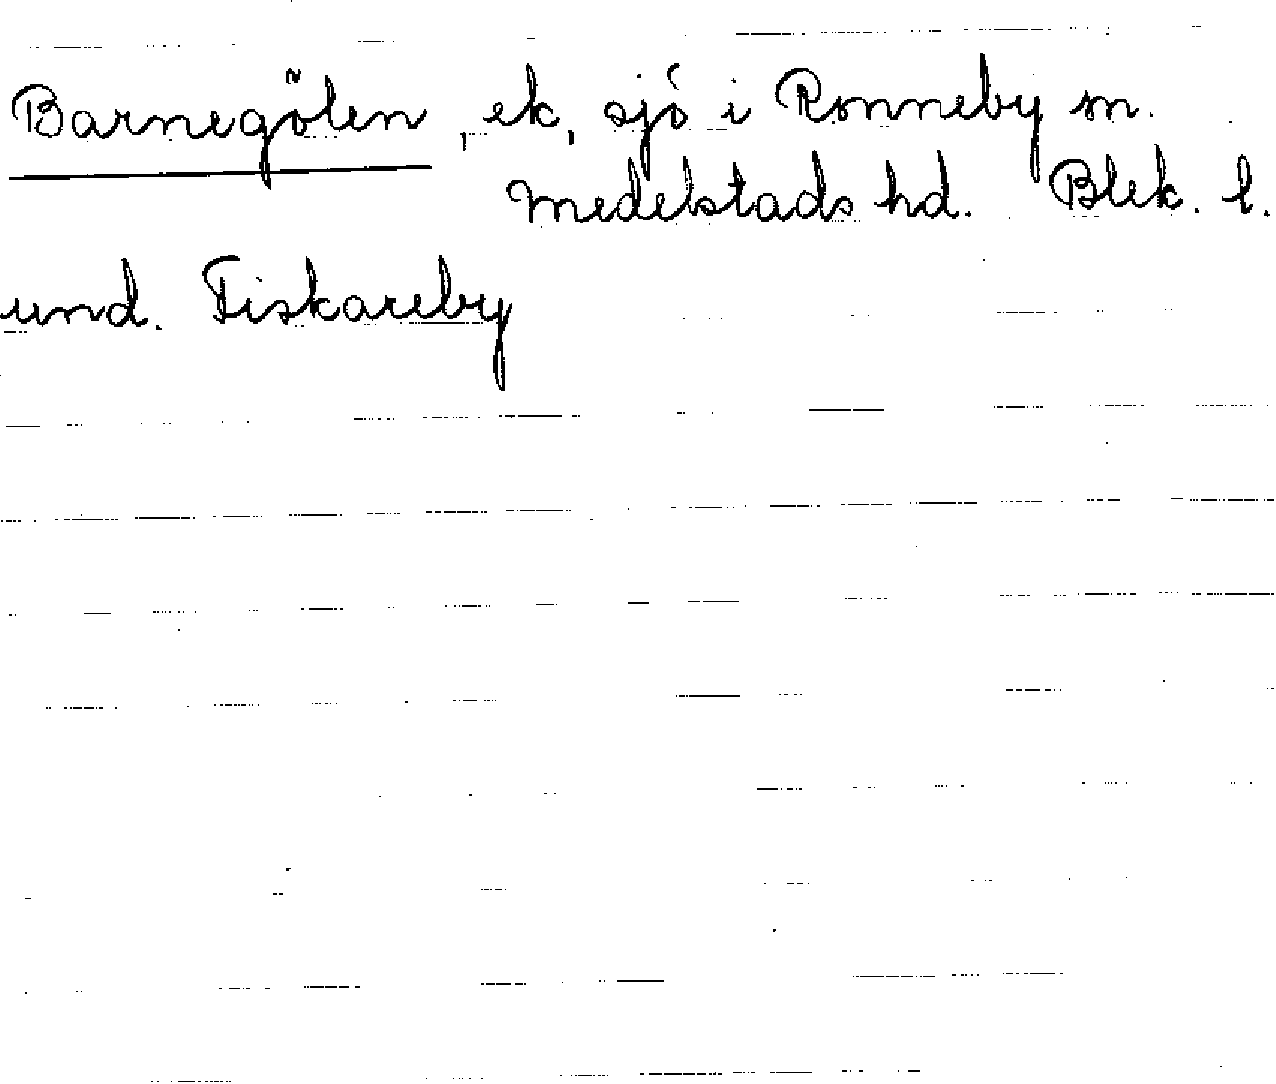 Barnegölen, ek, sjö i Ronneby sn.
Medelstads hd. Blek. l.
und. Fiskareby